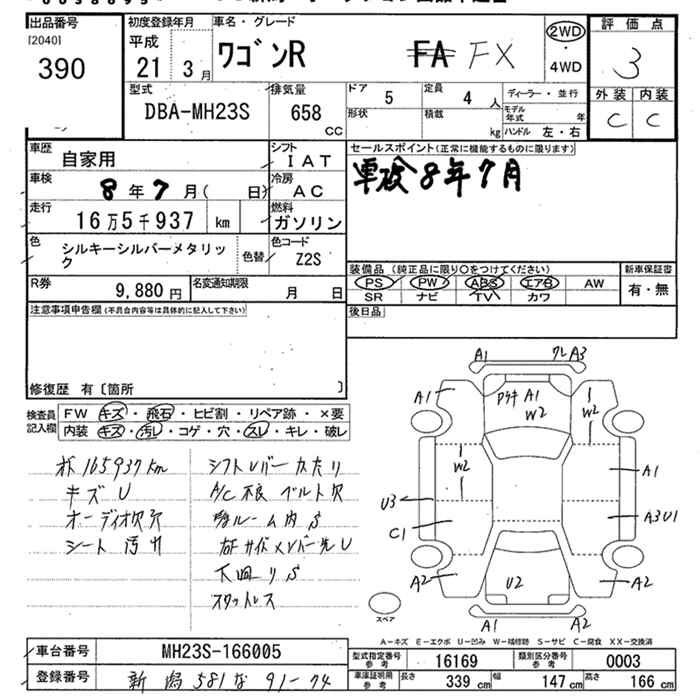 出品番号
[2040]
390
初度登録年月
平成
21 3月
車名・グレード
ワゴンR FA FX
2WD
・
4WD
評価点
3
外装 内装
C C
型式
DBA-MH23S
排気量
658
CC
ドア
5
定員
4 人
形状
積載
kg
ディーラー・並行
モデル年式 年
ハンドル 左・右
車歴
自家用
シフト
IAT
車検
8年7月( 日)
冷房
AC
走行
16万5千937 km
燃料
ガソリン
色
シルキーシルバーメタリック
色替
色コード
Z2S
R券
9,880円
名変通知期限
月 日
セールスポイント(正常に機能するものに限ります)
車検8年7月
装備品(純正品に限り○をつけてください)
新車保証書
PS PW ABS エアB AW
有・無
SR ナビ TV カワ
後日品
注意事項申告欄(不具合内容等は具体的に記入して下さい)
修復歴 有〔箇所 〕
検査員記入欄
FW キズ・飛石・ヒビ割・リペア跡・×要
内装 キズ・汚れ・コゲ・穴・スレ・キレ・破レ
165937km
シフトレバーカタリ
キズU
A/C不良 ベルト欠
オーディオ欠穴
ルーム内S
シート汚れ
右Fサイドメンバー先U
下廻りS
スタットレス
A1 クレA3
A1
A1
W2
W2
W2
A1
U3
C1
A3U1
A2
U2
A2
A1 A2
スペア
A-キズ E-エクボ U-凹み W-補修跡 S-サビ C-腐食 XX-交換済
車台番号
MH23S-166005
型式指定番号
参考
16169
類別区分番号
参考
0003
登録番号
新潟581な91-74
車庫証明用
参考
長さ
339 cm
幅
147 cm
高さ
166 cm